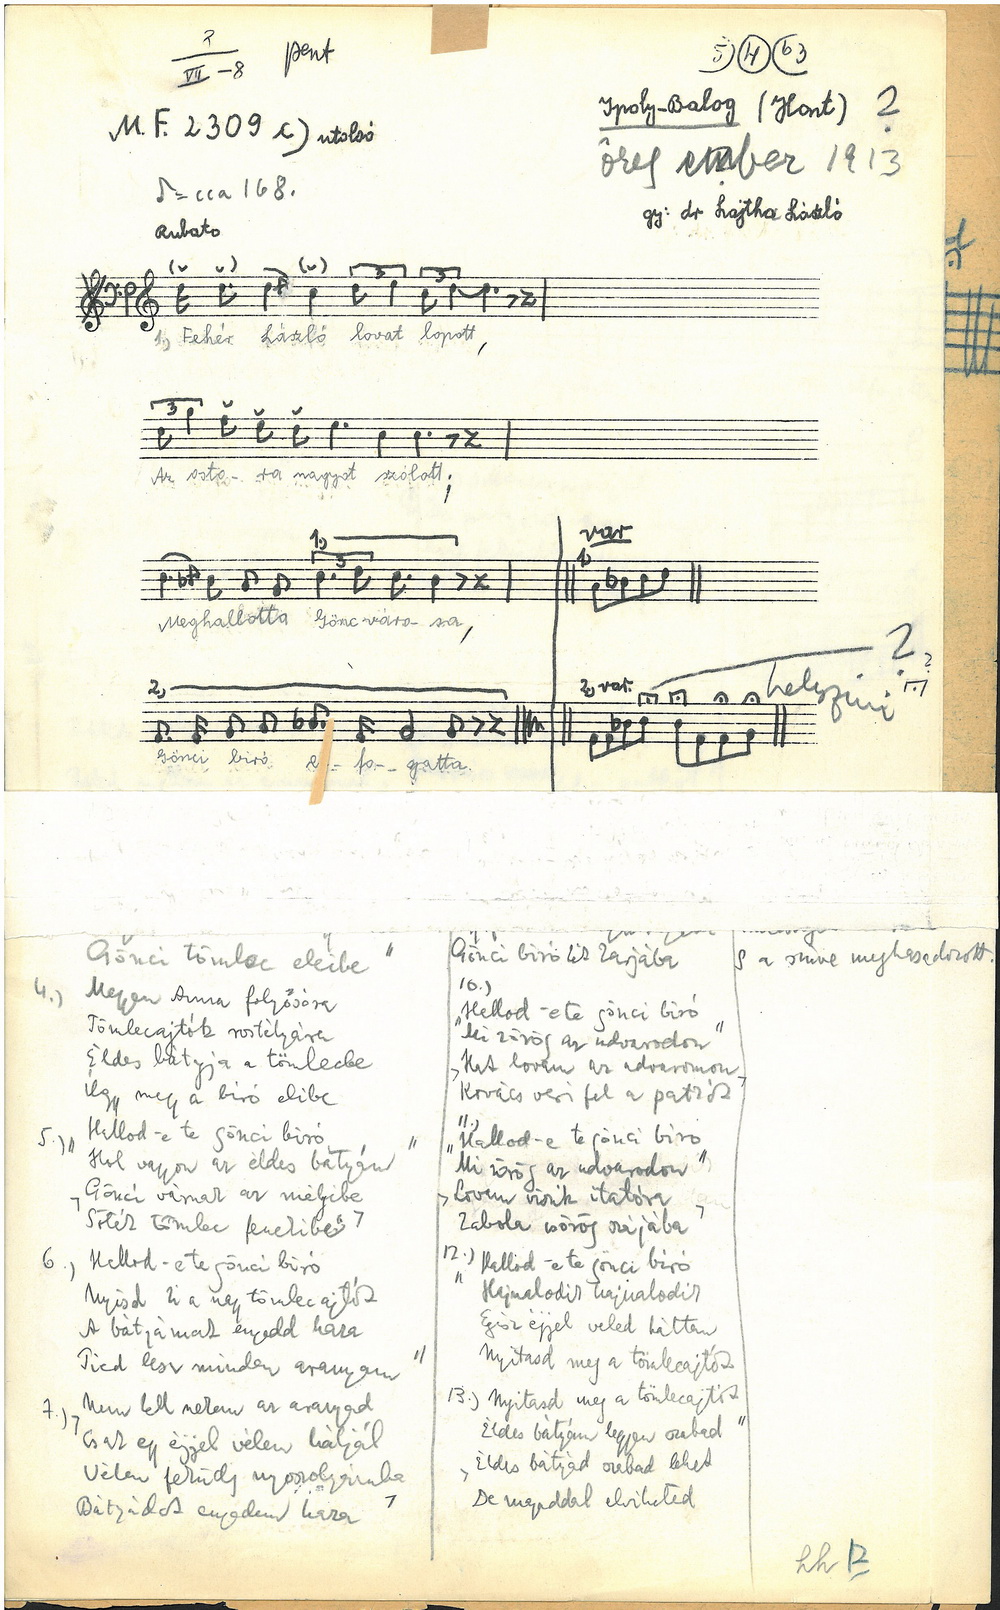 ?
VII-8 pent
5) 4 63
M.F. 2309 c) utolsó
Ipoly-Balog (Hont) ?
öreg ember 1913
= cca 168.
gy: dr Lajtha László
Rubato
1, Fehér László lovat lopott,
Az osto- ra nagyot szólott;
1,
var
1,
Meghallotta Gönc váro- sa,
2,
2, var.
helyszíni
?
Gönci biró e- fo- gatta.
Gönci tömlec eleibe "
4.) Megyen Anna folyósóra
Tömlecajtók rostélyára
Éldes bátyja a tömlecbe
Úgy megy a biró elibe
5.) "Hallod-e te gönci biró
Hol vagyon az éldes bátyám "
Gönci várnak az mélyibe
Sötét tömlec fenekibe
6.) Hallod-e te gönci biró
Nyisd ki a nagy tömlecajtót
A bátyámat engedd haza
Tied lesz minden aranyam "
7.) Nem kell nekem az aranyad
Csak egy éjjel vélem háljál
Vélem feküdj nyoszolyámba
Bátyádot engedem haza
Gönci biró két karjába
10.)
"Hallod-e te gönci biró
Mi zörög az udvarodon "
Hat lovam az udvaromon
Kovács veri fel a patkót
11.)
"Hallod-e te gönci biró
Mi zörög az udvarodon "
Lovam viszik itatóra
Zabola csörög szájába
12.) Hallod-e te gönci biró
" Hajnalodik hajnalodik
Egész éjjel veled háltam
Nyitasd meg a tömlecajtót
13.) Nyitasd meg a tömlecajtót
Éldes bátyám legyen szabad "
Éldes bátyád szabad lehet
De magaddal elviheted
S a szive meghasadozott.
hh B